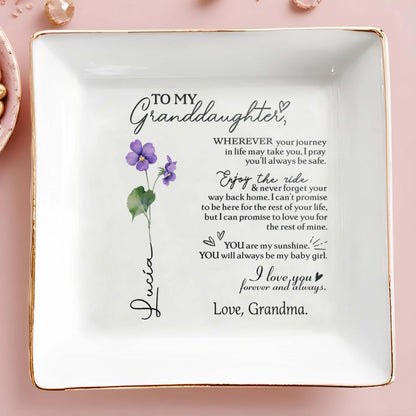 TO MY
Granddaughter,
WHEREVER your journey
in life may take you, I pray
you'll always be safe.
Enjoy the ride
& never forget your
way back home. I can't promise
to be here for the rest of your life,
but I can promise to love you for
the rest of mine.
YOU are my sunshine.
YOU will always be my baby girl.
I love you
forever and always.
Love, Grandma.
Lucia